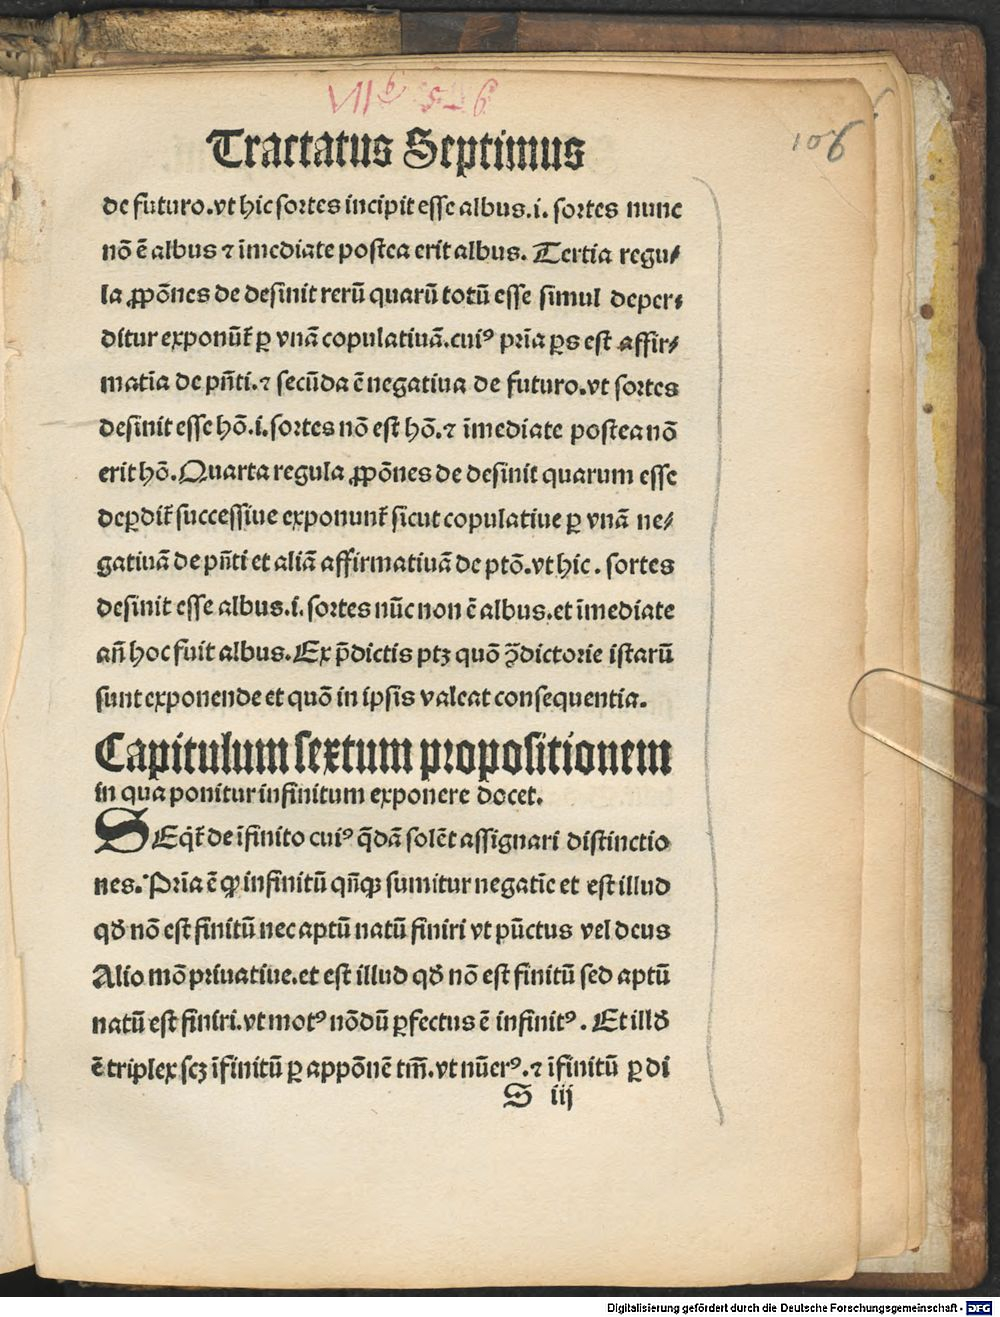 VIIᵇ 5-6
106
Tractatus Septimus
de futuro.vt hic sortes incipit esse albus.i. sortes nunc
nō ē albus ⁊ īmediate postea erit albus. Tertia regu⸗
la ꝓpōnes de desinit rerū quarū totū esse simul deper⸗
ditur exponūt᷑ ꝑ vnā copulatiuā.cuiꝰ pria ꝑs est affir⸗
matīa de pn̄ti.⁊ secūda ē negatiua de futuro.vt sortes
desinit esse hō.i.sortes nō est hō.⁊ īmediate postea nō
erit hō.Quarta regula ꝓpōnes de desinit quarum esse
deꝑdit᷑ successiue exponunt᷑ sicut copulatiue ꝑ vnā ne⸗
gatiuā de pn̄ti et aliā affirmatiuā de ptō.vt hic. sortes
desinit esse albus.i. sortes nūc non ē albus.et īmediate
an̄ hoc fuit albus.Ex p̄dictis ptꝫ quō ꝯ̄dictorie istarū
sunt exponende et quō in ipsis valeat consequentia.
Capitulum sextum propositionem
in qua ponitur infinitum exponere docet.
SEqt᷑ de īfinito cuiꝰ q̄dā solēt assignari distinctio
nes. Pria ē ꝙ infinitū qn̄qꝫ sumitur negatīe et est illud
qd̄ nō est finitū nec aptū natū finiri vt pūctus vel deus
Alio mō priuatiue.et est illud qd̄ nō est finitū sed aptū
natū est finiri.vt motꝰ nōdū ꝑfectus ē infinitꝰ. Et illd̄
ē triplex scꝫ īfinitū ꝑ appōnē tm̄.vt nūerꝰ.⁊ īfinitū ꝑ di
S iij
Digitalisierung gefördert durch die Deutsche Forschungsgemeinschaft - DFG